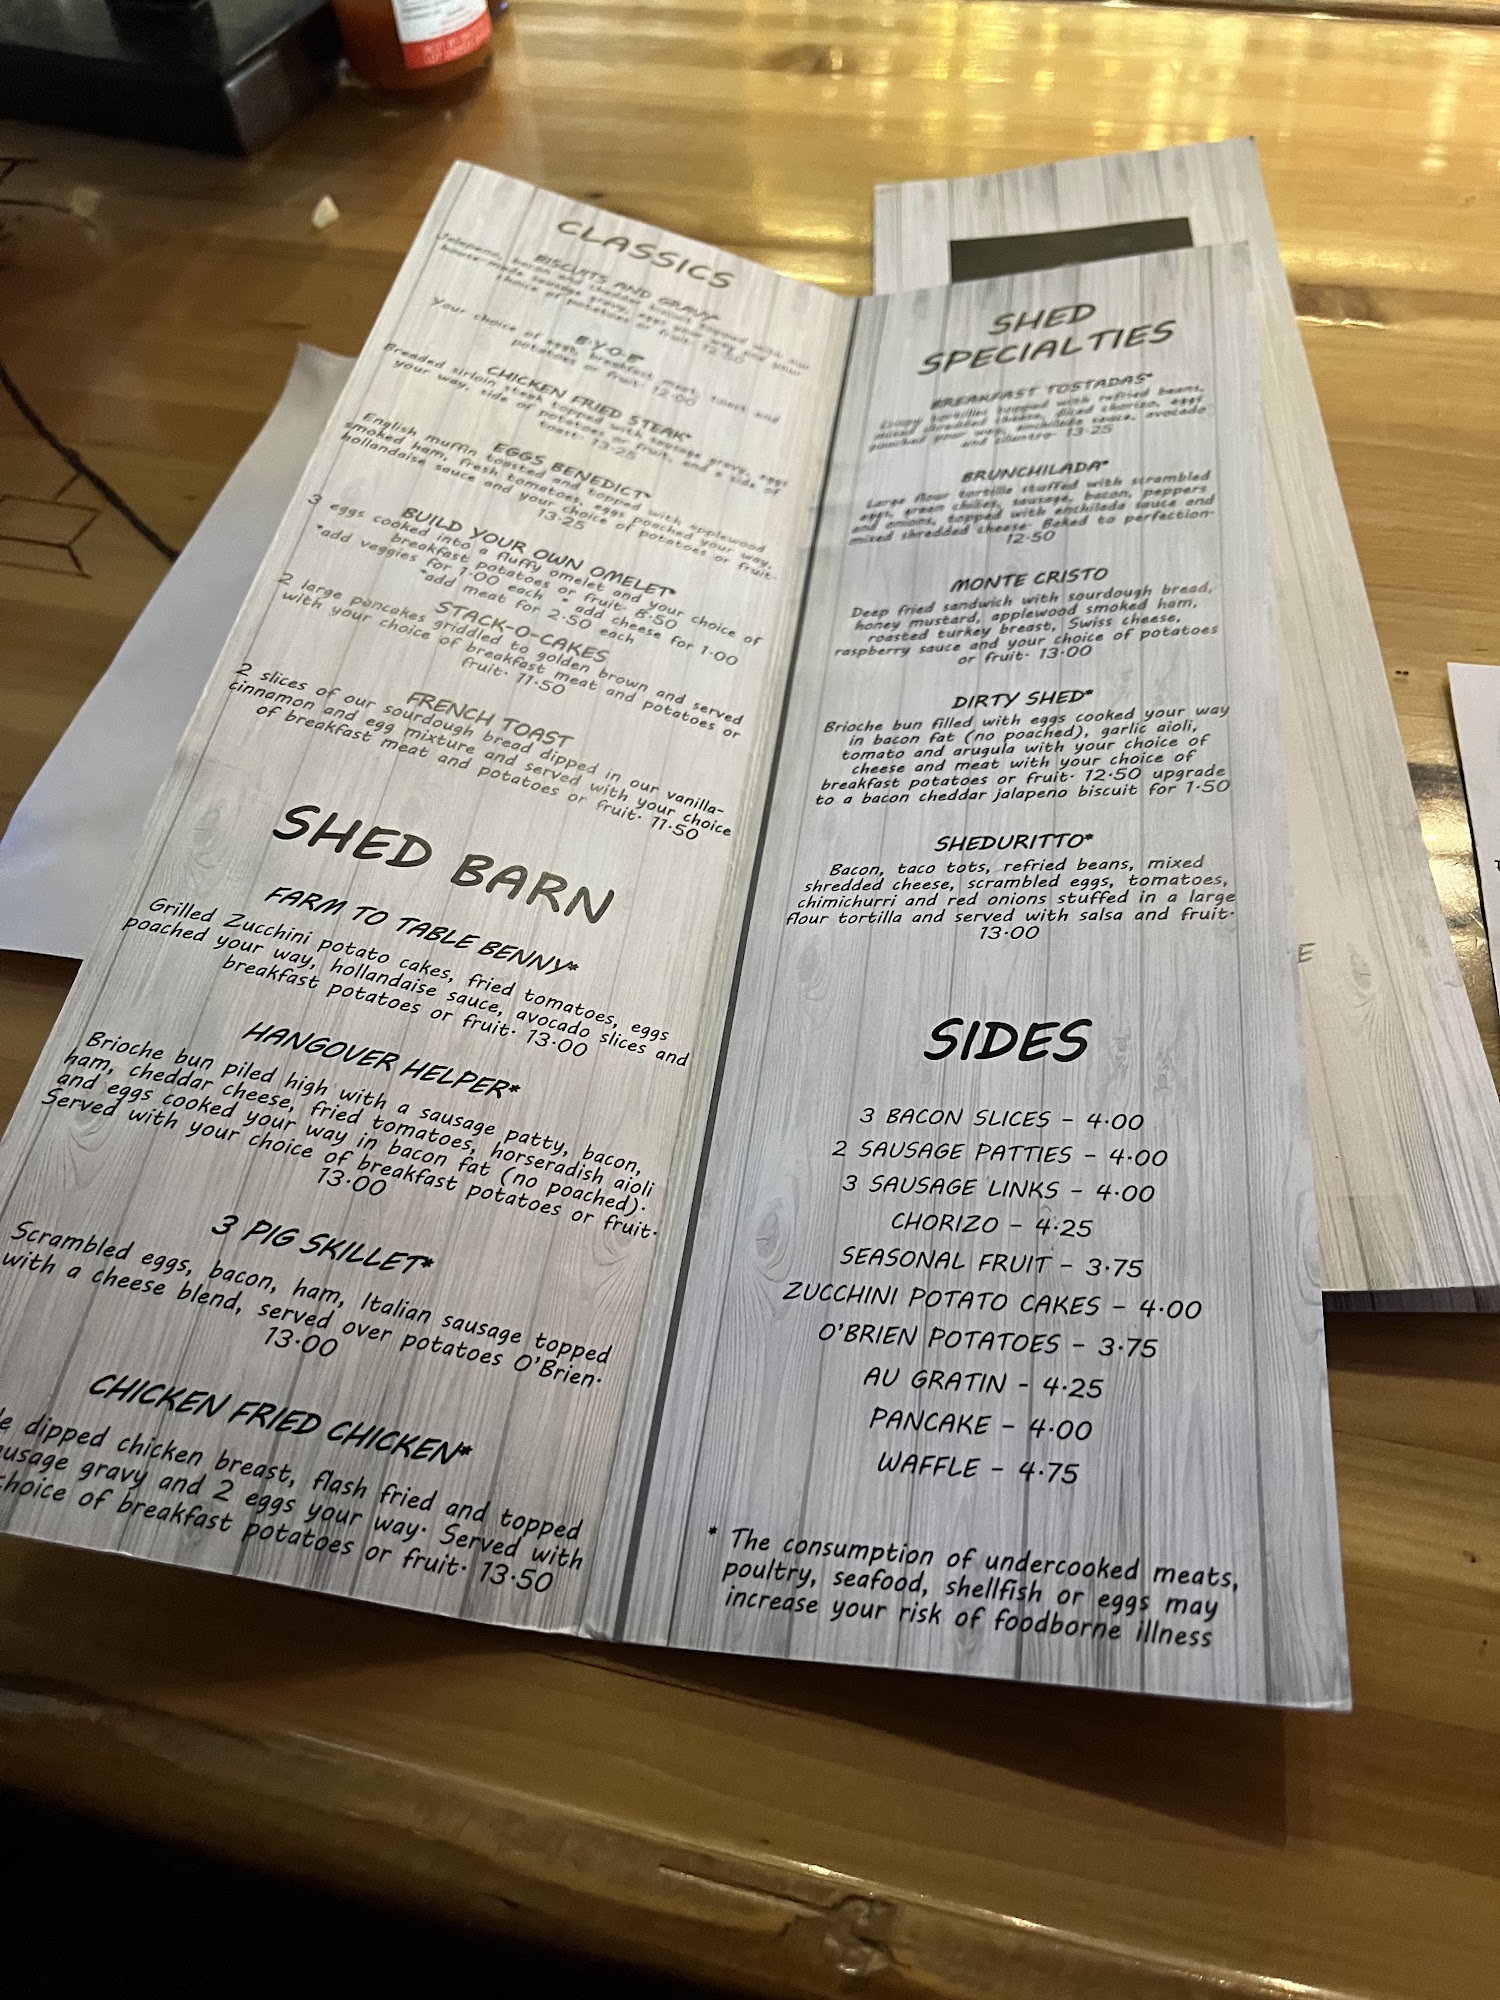 CLASSICS
BISCUITS AND GRAVY*
Jalapeno, bacon and cheddar biscuit topped with our
house-made sausage gravy, eggs your way and your
choice of potatoes or fruit· 12·50
B·Y·O·B*
Your choice of eggs, breakfast meat, toast and
potatoes or fruit· 12·00
CHICKEN FRIED STEAK*
Breaded sirloin steak topped with sausage gravy, eggs
your way, side of potatoes or fruit, and a side of
toast· 13·25
EGGS BENEDICT*
English muffin toasted and topped with applewood
smoked ham, fresh tomatoes, eggs poached your way,
hollandaise sauce and your choice of potatoes or fruit·
13·25
BUILD YOUR OWN OMELET*
3 eggs cooked into a fluffy omelet and your choice of
breakfast potatoes or fruit· 8·50
*add veggies for 1·00 each * add cheese for 1·00
*add meat for 2·50 each
STACK-O-CAKES
2 large pancakes griddled to golden brown and served
with your choice of breakfast meat and potatoes or
fruit· 11·50
FRENCH TOAST
2 slices of our sourdough bread dipped in our vanilla-
cinnamon and egg mixture and served with your choice
of breakfast meat and potatoes or fruit· 11·50
SHED BARN
FARM TO TABLE BENNY*
Grilled Zucchini potato cakes, fried tomatoes, eggs
poached your way, hollandaise sauce, avocado slices and
breakfast potatoes or fruit· 13·00
HANGOVER HELPER*
Brioche bun piled high with a sausage patty, bacon,
ham, cheddar cheese, fried tomatoes, horseradish aioli
and eggs cooked your way in bacon fat (no poached)·
Served with your choice of breakfast potatoes or fruit·
13·00
3 PIG SKILLET*
Scrambled eggs, bacon, ham, Italian sausage topped
with a cheese blend, served over potatoes O'Brien·
13·00
CHICKEN FRIED CHICKEN*
dipped chicken breast, flash fried and topped
sausage gravy and 2 eggs your way· Served with
choice of breakfast potatoes or fruit· 13·50
SHED
SPECIALTIES
BREAKFAST TOSTADAS*
Crispy tortillas topped with refried beans,
mixed shredded cheese, diced chorizo, eggs
poached your way, enchilada sauce, avocado
and cilantro· 13·25
BRUNCHILADA*
Large flour tortilla stuffed with scrambled
eggs, green chilies, sausage, bacon, peppers
and onions, topped with enchilada sauce and
mixed shredded cheese· Baked to perfection·
12·50
MONTE CRISTO
Deep fried sandwich with sourdough bread,
honey mustard, applewood smoked ham,
roasted turkey breast, Swiss cheese,
raspberry sauce and your choice of potatoes
or fruit· 13·00
DIRTY SHED*
Brioche bun filled with eggs cooked your way
in bacon fat (no poached), garlic aioli,
tomato and arugula with your choice of
cheese and meat with your choice of
breakfast potatoes or fruit· 12·50 upgrade
to a bacon cheddar jalapeno biscuit for 1·50
SHEDURITTO*
Bacon, taco tots, refried beans, mixed
shredded cheese, scrambled eggs, tomatoes,
chimichurri and red onions stuffed in a large
flour tortilla and served with salsa and fruit·
13·00
SIDES
3 BACON SLICES – 4·00
2 SAUSAGE PATTIES – 4·00
3 SAUSAGE LINKS – 4·00
CHORIZO – 4·25
SEASONAL FRUIT – 3·75
ZUCCHINI POTATO CAKES – 4·00
O'BRIEN POTATOES – 3·75
AU GRATIN - 4·25
PANCAKE – 4·00
WAFFLE – 4·75
* The consumption of undercooked meats,
poultry, seafood, shellfish or eggs may
increase your risk of foodborne illness